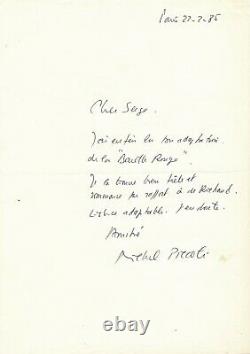 Paris 22-2-85
Cher Serge,
J'ai enfin lu ton adaptation
de la "Barette Rouge"
Je la trouve bien et
par rapport à de Richaud.
adaptable. J'en doute.
Amitié
Michel Piccoli
ebay